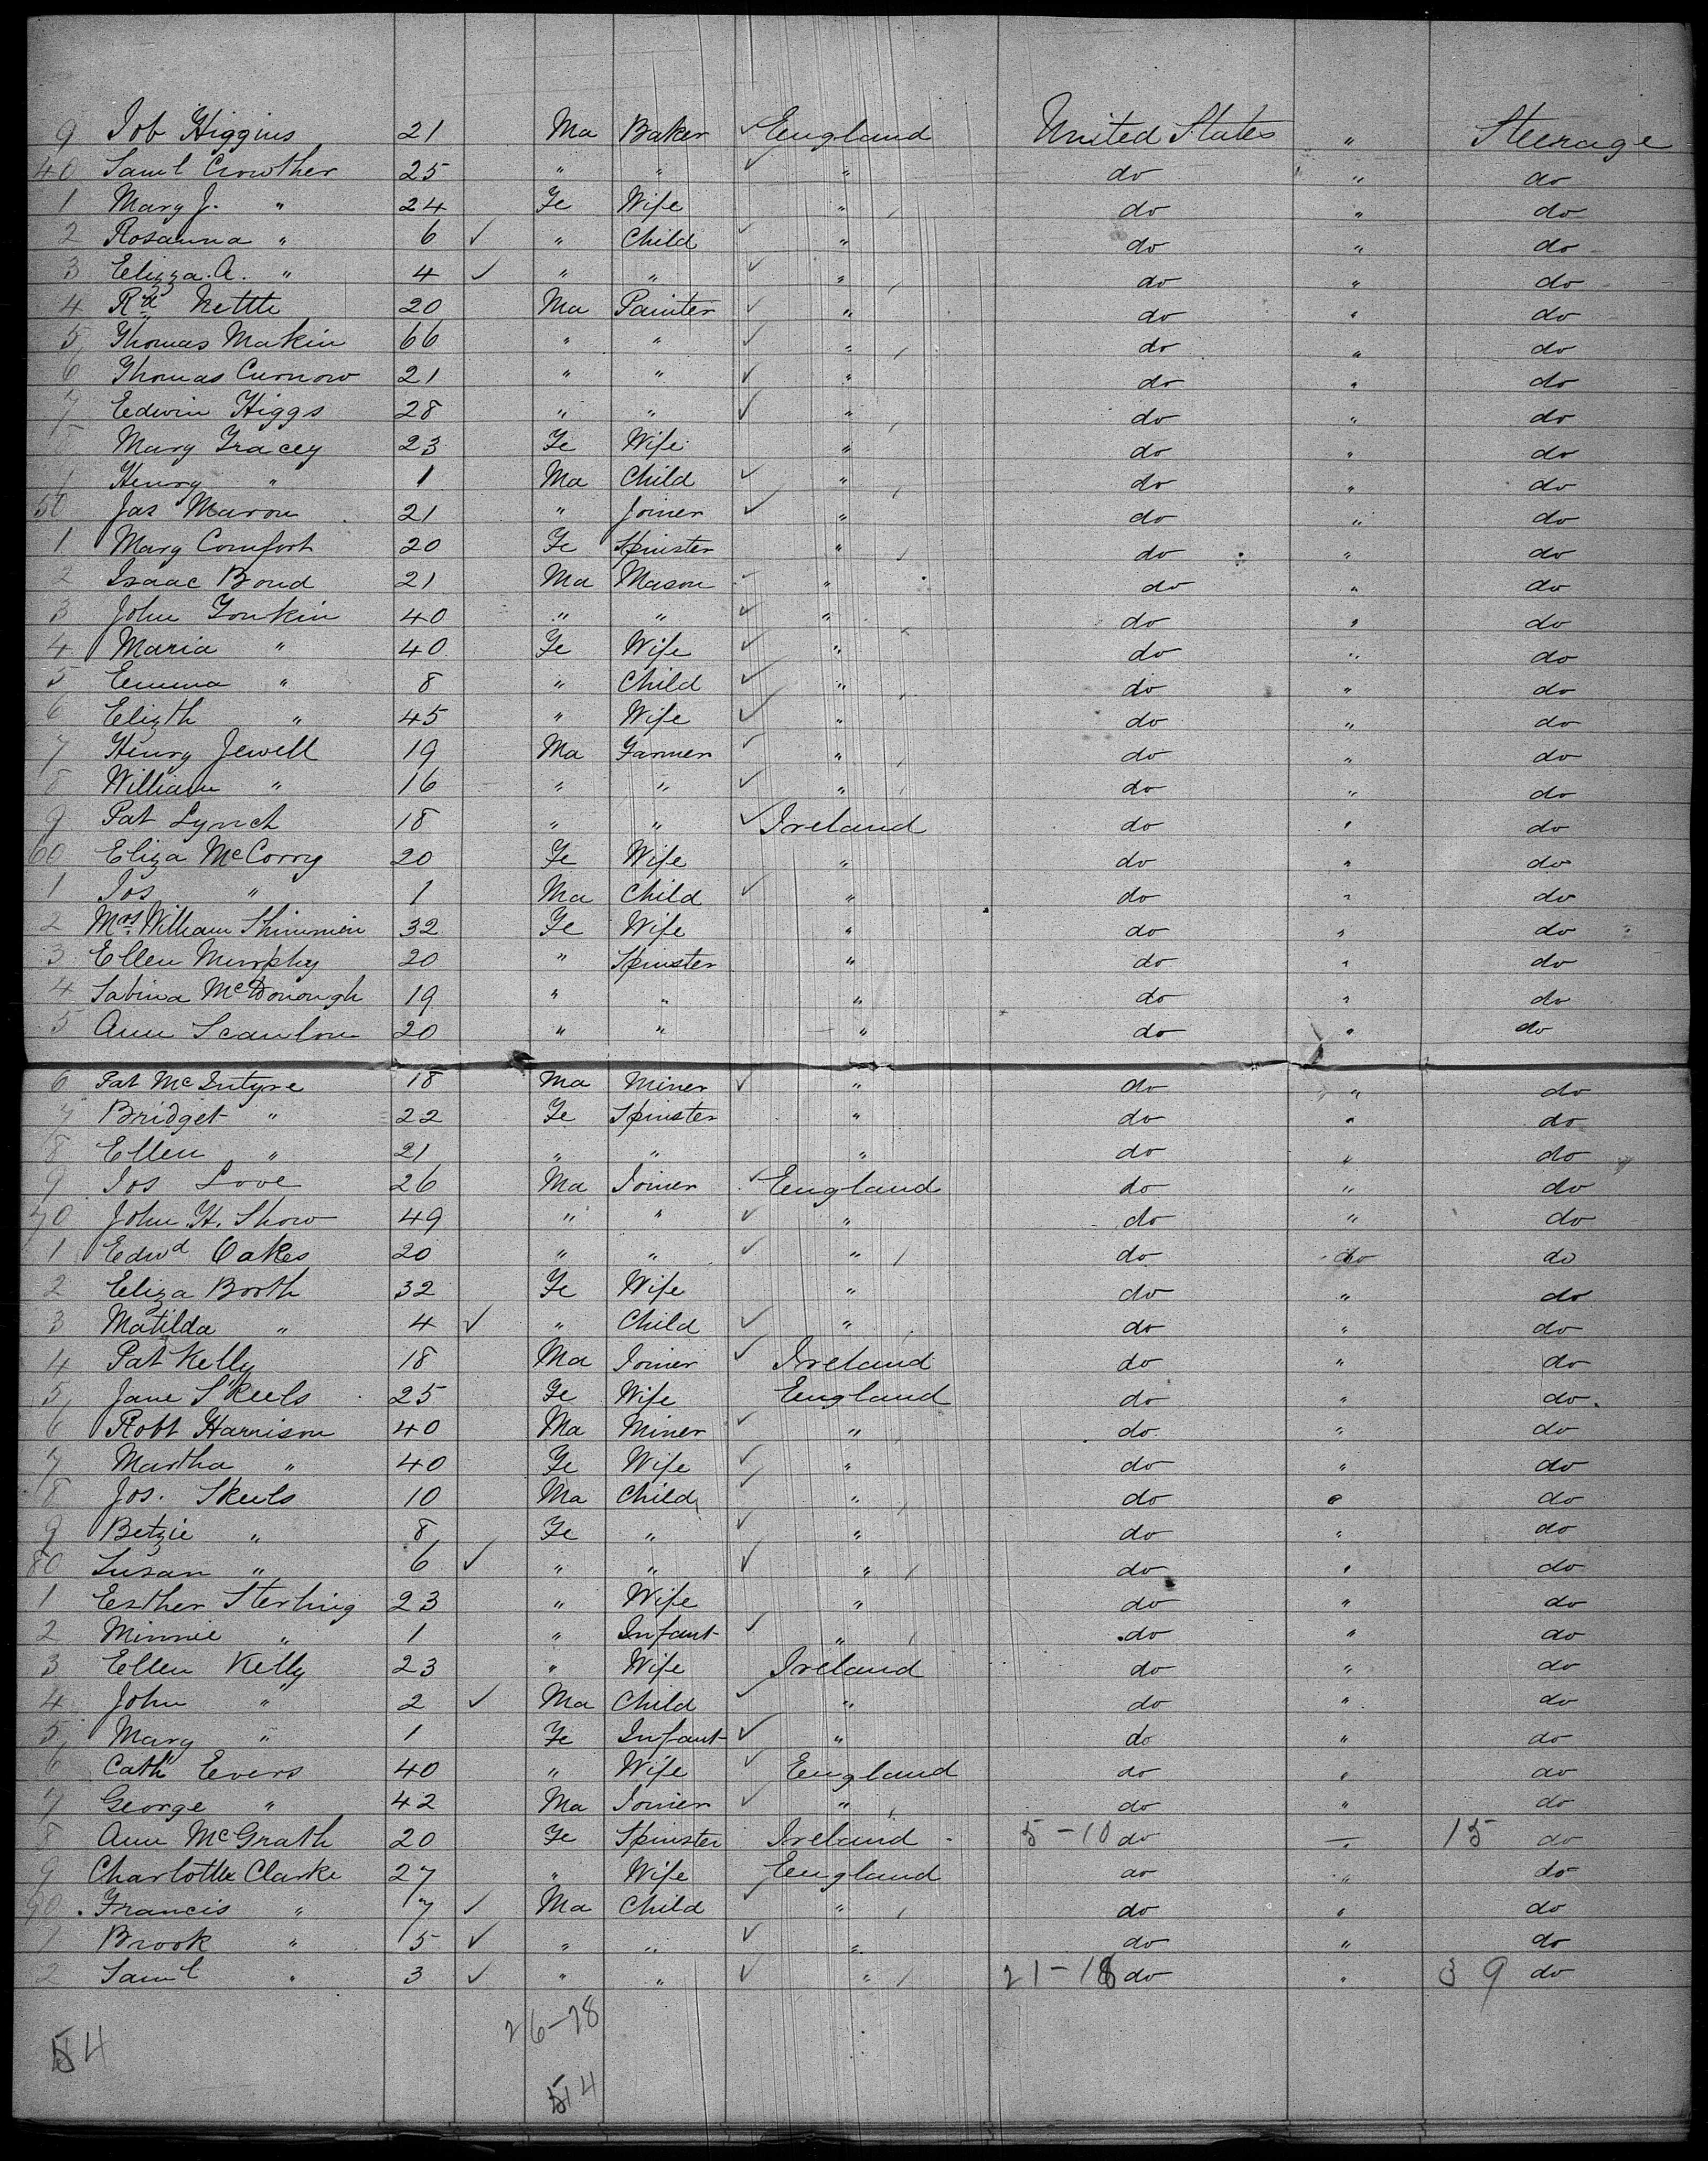 9 Job Higgins 21 Ma Baker ✓ England United States " Steerage
40 Saml Crowther 25 " " ✓ " do " do
1 Mary J. " 24 Fe Wife " do " do
2 Rosanna " 6 ✓ " Child ✓ " do " do
3 Elizza. A. " 4 ✓ " " ✓ " do " do
4 Rd Nettle 20 Ma Painter ✓ " do " do
5 Thomas Makin 66 " " ✓ " do " do
6 Thomas Curnow 21 " " ✓ " do " do
7 Edwin Higgs 28 " " ✓ " do " do
8 Mary Tracey 23 Fe Wife " do " do
9 Henry " 1 Ma Child ✓ " do " do
50 Jas Maron 21 " Joiner ✓ " do " do
1 Mary Comfort 20 Fe Spinster " do " do
2 Isaac Bond 21 Ma Mason ✓ " do " do
3 John Tonkin 40 " " ✓ " do " do
4 Maria " 40 Fe Wife ✓ " do " do
5 Emma " 8 " Child ✓ " do " do
6 Elizth " 45 " Wife ✓ " do " do
7 Henry Jewell 19 Ma Farmer ✓ " do " do
8 William " 16 " " ✓ " do " do
9 Pat Lynch 18 " " ✓ Ireland do " do
60 Eliza McCorry 20 Fe Wife " do " do
1 Jos " 1 Ma Child ✓ " do " do
2 Mrs William Shimmin 32 Fe Wife " do " do
3 Ellen Murphy 20 " Spinster " do " do
4 Sabina McDonough 19 " " " do " do
5 Ann Scanlon 20 " " " do " do
6 Pat McIntyre 18 Ma Miner ✓ " do " do
7 Bridget " 22 Fe Spinster " do " do
8 Ellen " 21 " " " do " do
9 Jos Love 26 Ma Joiner ✓ England do " do
70 John H. Show 49 " " ✓ " do " do
1 Edwd Oakes 20 " " ✓ " do do do
2 Eliza Booth 32 Fe Wife " do " do
3 Matilda " 4 ✓ " Child ✓ " do " do
4 Pat Kelly 18 Ma Joiner ✓ Ireland do " do
5 Jane Skeels 25 Fe Wife England do " do
6 Robt Harrison 40 Ma Miner ✓ " do " do
7 Martha " 40 Fe Wife ✓ " do " do
8 Jos. Skeels 10 Ma Child ✓ " do " do
9 Betzie " 8 Fe " ✓ " do " do
80 Susan " 6 ✓ " " ✓ " do " do
1 Esther Sterling 23 " Wife " do " do
2 Minnie " 1 " Infant ✓ " do " do
3 Ellen Kelly 23 " Wife Ireland do " do
4 John " 2 ✓ Ma Child ✓ " do " do
5 Mary " 1 Fe Infant ✓ " do " do
6 Cath Evers 40 " Wife ✓ England do " do
7 George " 42 Ma Joiner ✓ " do " do
8 Ann McGrath 20 Fe Spinster Ireland 5-10 do " 15 do
9 Charlotte Clarke 27 " Wife England do " do
90 Francis " 7 ✓ Ma Child ✓ " do " do
1 Brook " 5 ✓ " " ✓ " do " do
2 Saml " 3 ✓ " " ✓ " 21-18 do " 39 do
26-28
54
54